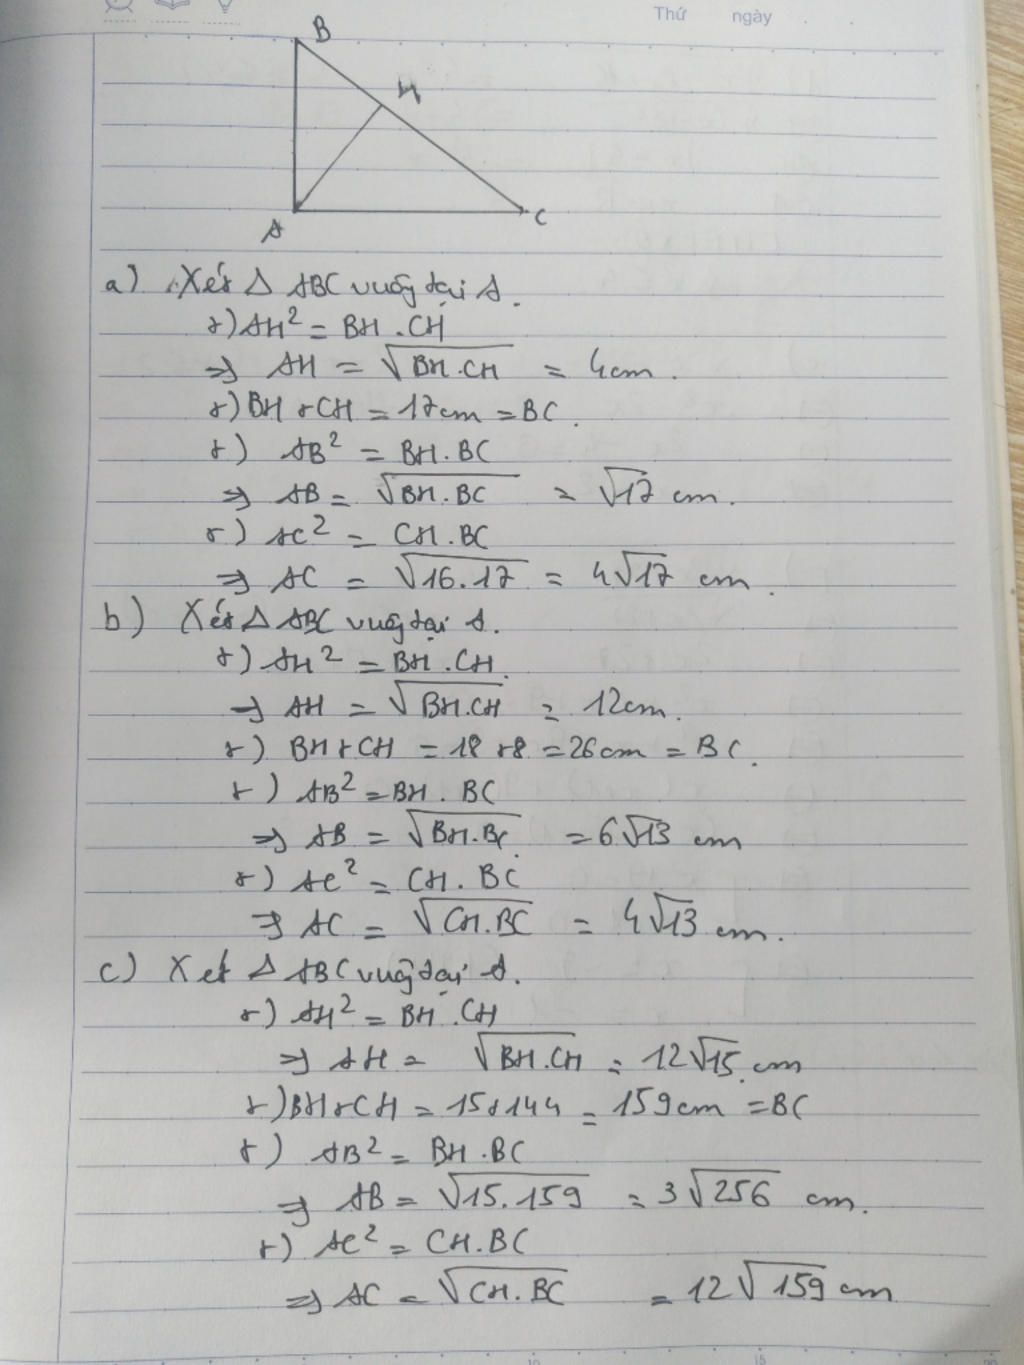 Thứ ngày
B
H
A
C
a) Xét Δ ABC vuông tại A.
+) AH² = BH . CH
⇒ AH = √BH.CH = 4cm.
+) BH + CH = 17cm = BC.
+) AB² = BH. BC
⇒ AB = √BH.BC = √17 cm.
+) AC² = CH. BC
⇒ AC = √16.17 = 4√17 cm.
b) Xét Δ ABC vuông tại A.
+) AH² = BH . CH.
⇒ AH = √BH.CH = 12cm.
+) BH + CH = 18 + 8 = 26cm = BC.
+) AB² = BH. BC
⇒ AB = √BH.BC = 6√13 cm
+) AC² = CH. BC
⇒ AC = √CH.BC = 4√13 cm.
c) Xét Δ ABC vuông tại A.
+) AH² = BH .CH
⇒ AH = √BH.CH = 12√15 cm
+) BH + CH = 15 + 144 = 159cm = BC
+) AB² = BH .BC
⇒ AB = √15.159 = 3√256 cm.
+) AC² = CH.BC
⇒ AC = √CH.BC = 12√159 cm